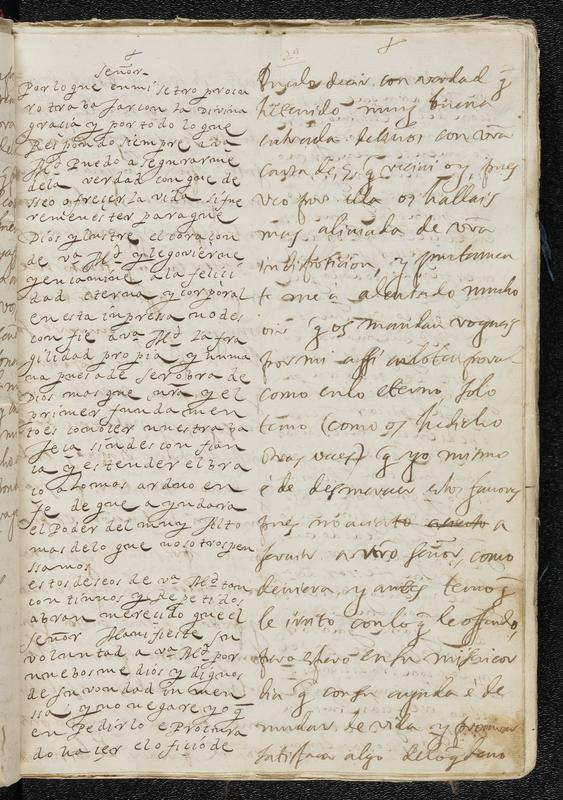 Señor
Por lo que en mi setro procu
ro tra va jar con la Divina
gracia y por todo lo que
Respondo siempre a va
Md Puedo asegurarme
dela verdad con que de
sseo ofrecer la vida si fue
re menester para que
Dios y lustre el coraçon
de va Md y le govierne
y encamine a la felici
dad eterna y corporal
en esta impresa no des
confie a va Md la fra
gilidad propia y huma
na pues a de ser obra de
Dios mas que nra y el
primer fundamen
to es conocer nuestra ba
jeça sin desconfian
ça y estender el bra
ço a lo mas arduo en
fe de que ayudara
el Poder del muy Alto
mas de lo que nosotros pen
ssamos
estos deseos de va Md tan
continuos y Repetidos
abran merecido que el
señor Manifieste su
voluntad a va Md por
nuebos me dios y dignos
de su vondad inmen
ssa y yo no negare yo q̄
en Pedirlo e Procura
do haçer el ofiçio de
29
Puedo decir con verdad q̄
he tenido muy buena
entrada de con vra
carta de q̄ reciui oy, pues
veo por ella os hallais
mas aliuiada de vra
indispoſicion, y juntamen
te me a alentado mucho
oir q̄ os mandan rogueis
por mi aſſi en lo temporal
como en lo eterno, solo
temo (como os he dicho
otras veces) q̄ yo mismo
é de desmereçer estos fauores
pues no acierto a
seruir a nro señor, como
deuiera, y antes temo q̄
le irrito con lo q̄ le offendo,
pero espero en su misericor
dia q̄ con su ayuda é de
mudar de vida y procurar
satisfaçer algo de lo q̄ deuo